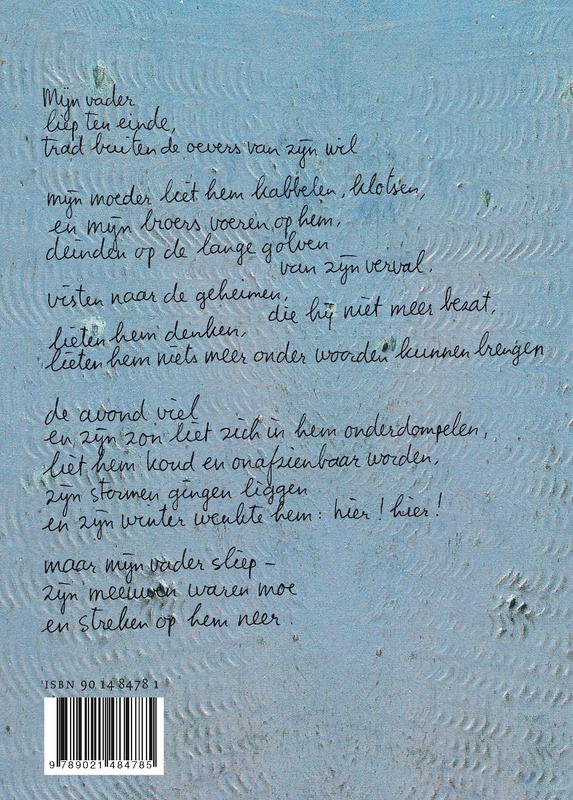 Mijn vader
liep ten einde,
trad buiten de oevers van zijn wil
mijn moeder liet hem kabbelen, klotsen,
en mijn broers voeren op hem,
deinden op de lange golven
van zijn verval,
visten naar de geheimen,
die hij niet meer bezat,
lieten hem denken,
lieten hem niets meer onder woorden kunnen brengen
de avond viel
en zijn zon liet zich in hem onderdompelen,
liet hem koud en onafzienbaar worden,
zijn stormen gingen liggen
en zijn winter wenkte hem: hier! hier!
maar mijn vader sliep –
zijn meeuwen waren moe
en streken op hem neer.
ISBN 90 14 8478 1
9 789021 484785